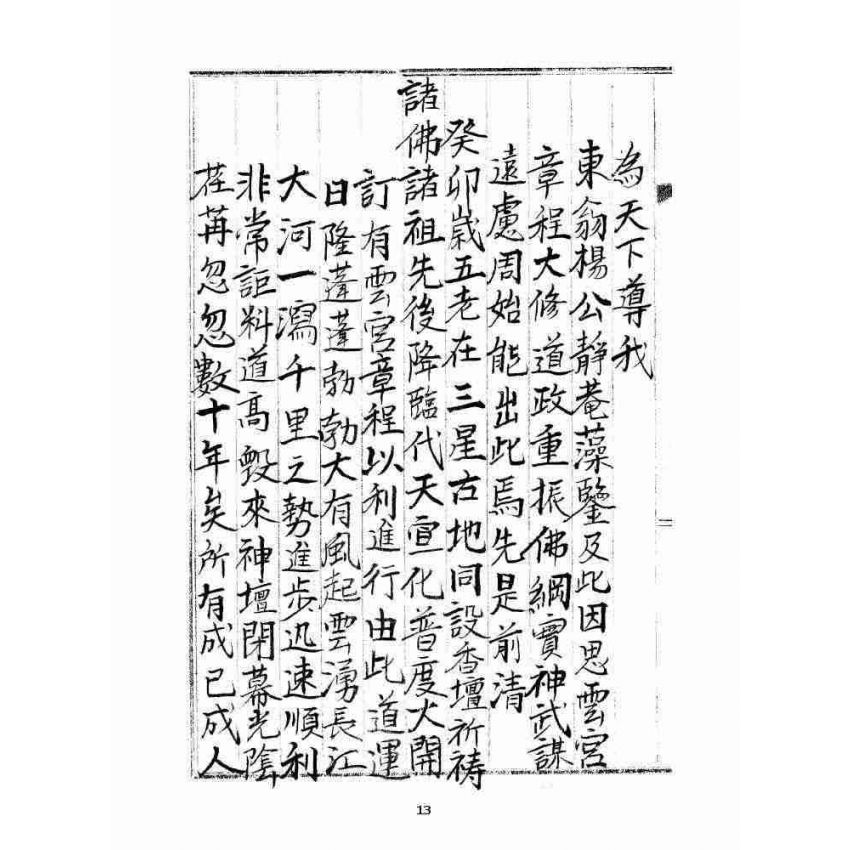 為天下導我
東翁楊公靜菴藻鑒及此因思雲宮
章程大修道政重振佛綱實神武謀
遠慮周始能出此焉先是前清
癸卯歲五老在三星古地同設香壇祈禱
諸佛諸祖先後降臨代天宣化普度大開
訂有雲宮章程以利進行由此道運
日隆蓬蓬勃勃大有風起雲湧長江
大河一瀉千里之勢進步迅速順利
非常詎料道高毀來神壇閉幕光陰
荏苒忽忽數十年矣所有成已成人
二
13